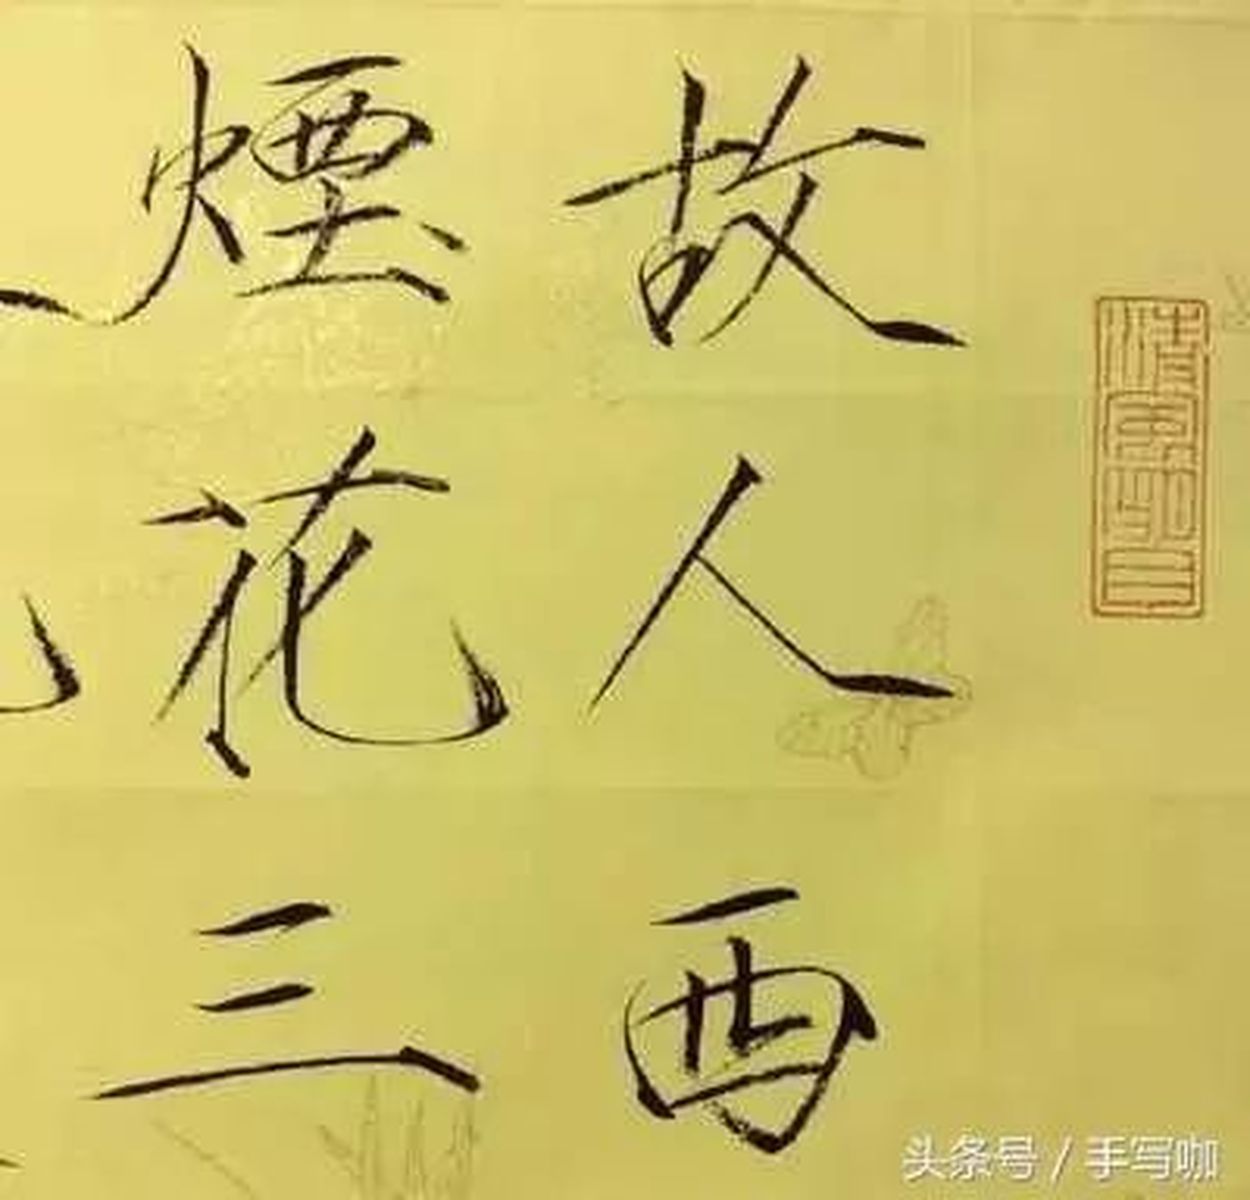 故人西
煙花三
头条号 / 手写咖